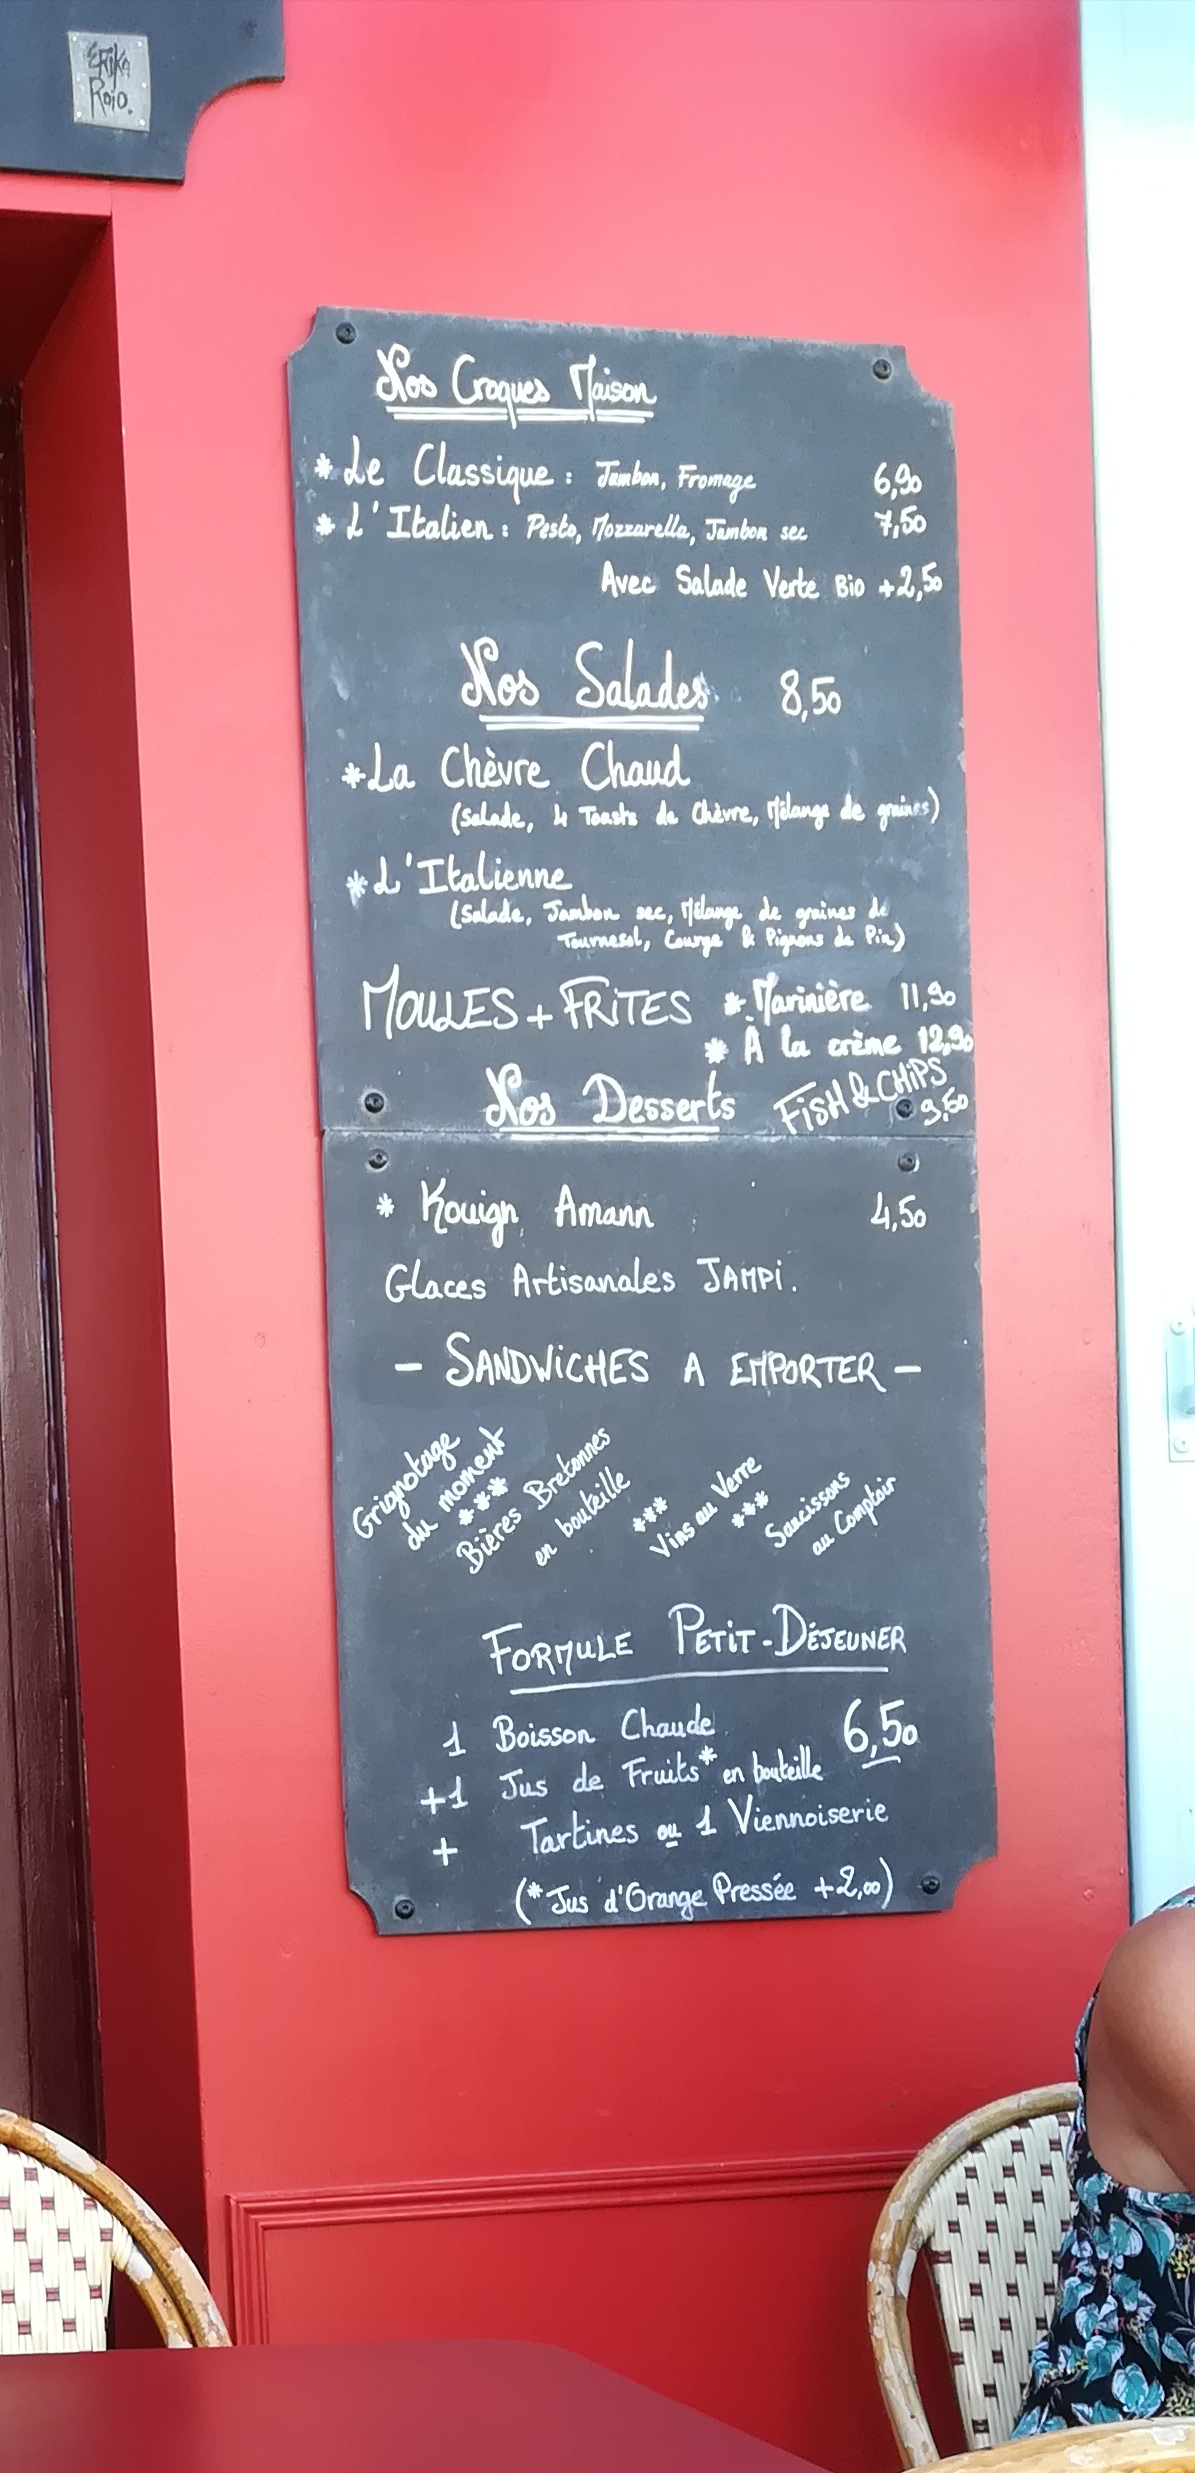 Erika
Roio.
Nos Croques Maison
* Le Classique : Jambon, Fromage 6,90
* L'Italien : Pesto, Mozzarella, Jambon sec 7,50
Avec Salade Verte Bio +2,50
Nos Salades 8,50
* La Chèvre Chaud
(Salade, 4 Toasts de Chèvre, Mélange de graines)
* L'Italienne
(Salade, Jambon sec, Mélange de graines de
Tournesol, Courge & Pignons de Pin)
MOULES + FRITES * Marinière 11,90
* À la crème 12,90
Nos Desserts
FISH & CHIPS
9,50
* Kouign Amann 4,50
Glaces Artisanales JAMPI.
- SANDWICHES A EMPORTER -
Grignotage
du moment
***
Bières Bretonnes
en bouteille
***
Vins au Verre
***
Saucissons
au Comptoir
FORMULE PETIT-DÉJEUNER
1 Boisson Chaude 6,50
+1 Jus de Fruits* en bouteille
+ Tartines ou 1 Viennoiserie
(*Jus d'Orange Pressée +2,00)